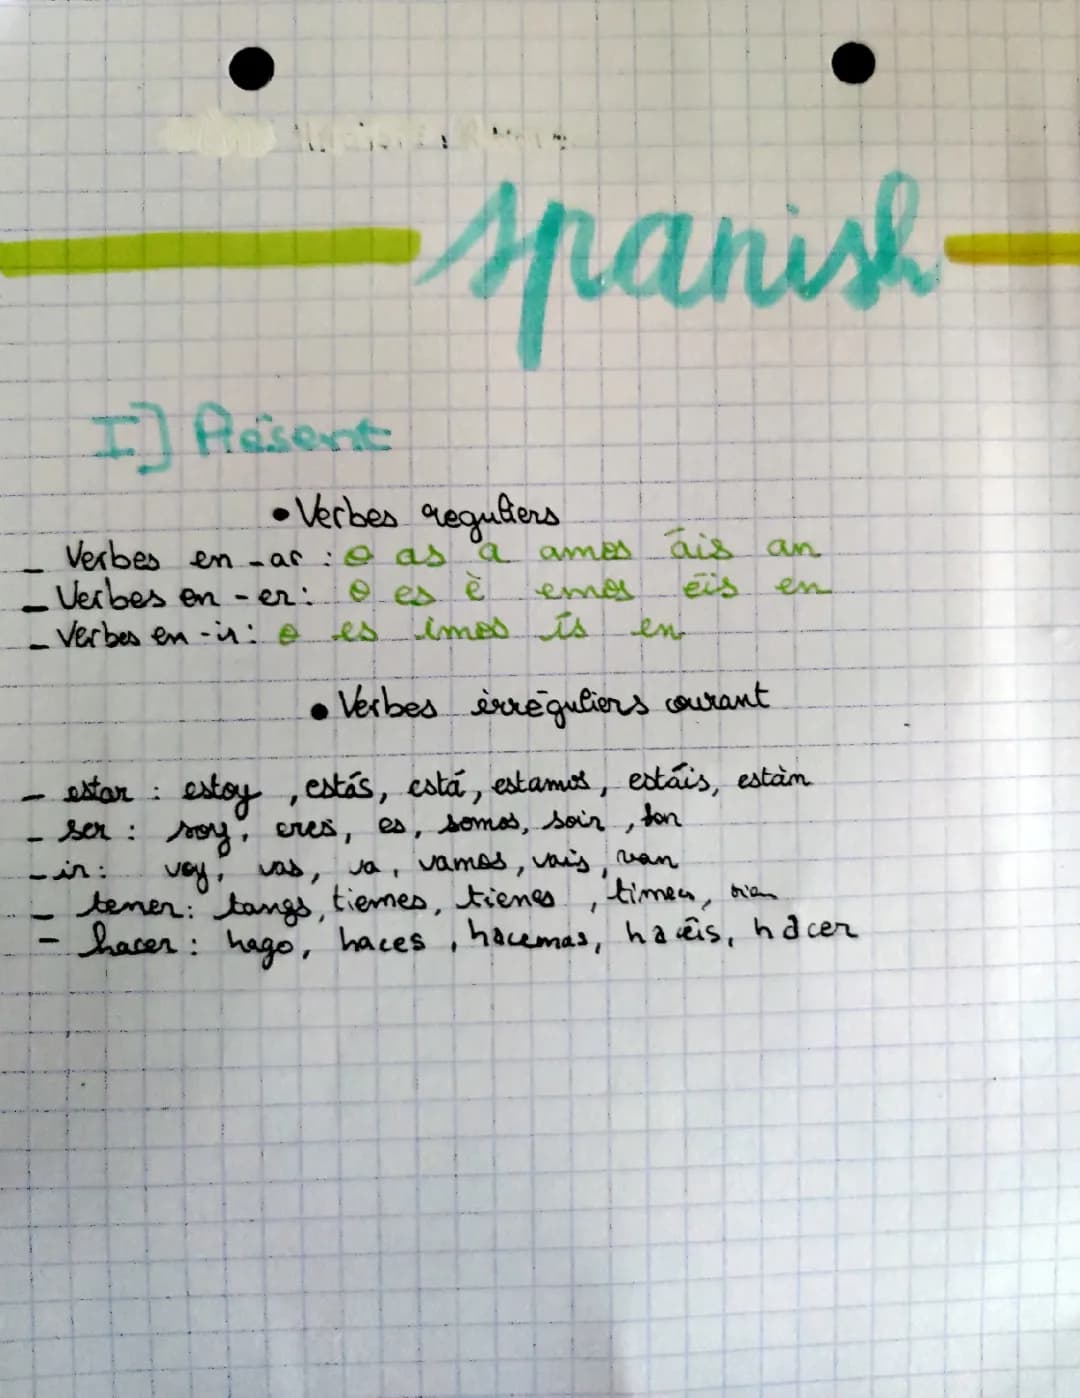 spanish
I] Présent
• Verbes reguliers
- Verbes en -ar : o as a amos áis an
- Verbes en -er : o es è emos éis en
- Verbes en -ir : o es imos ís en
• Verbes irréguliers courant
- estar : estoy , estás, está, estamos, estáis, estàn
- ser : soy, eres, es, somos, soir , son
- ir : voy, vas, va, vamos, vais, van
- tener : tangs, tiemes, tienes , timen,
- hacer : hago, haces , hacemas, hacéis, hacer